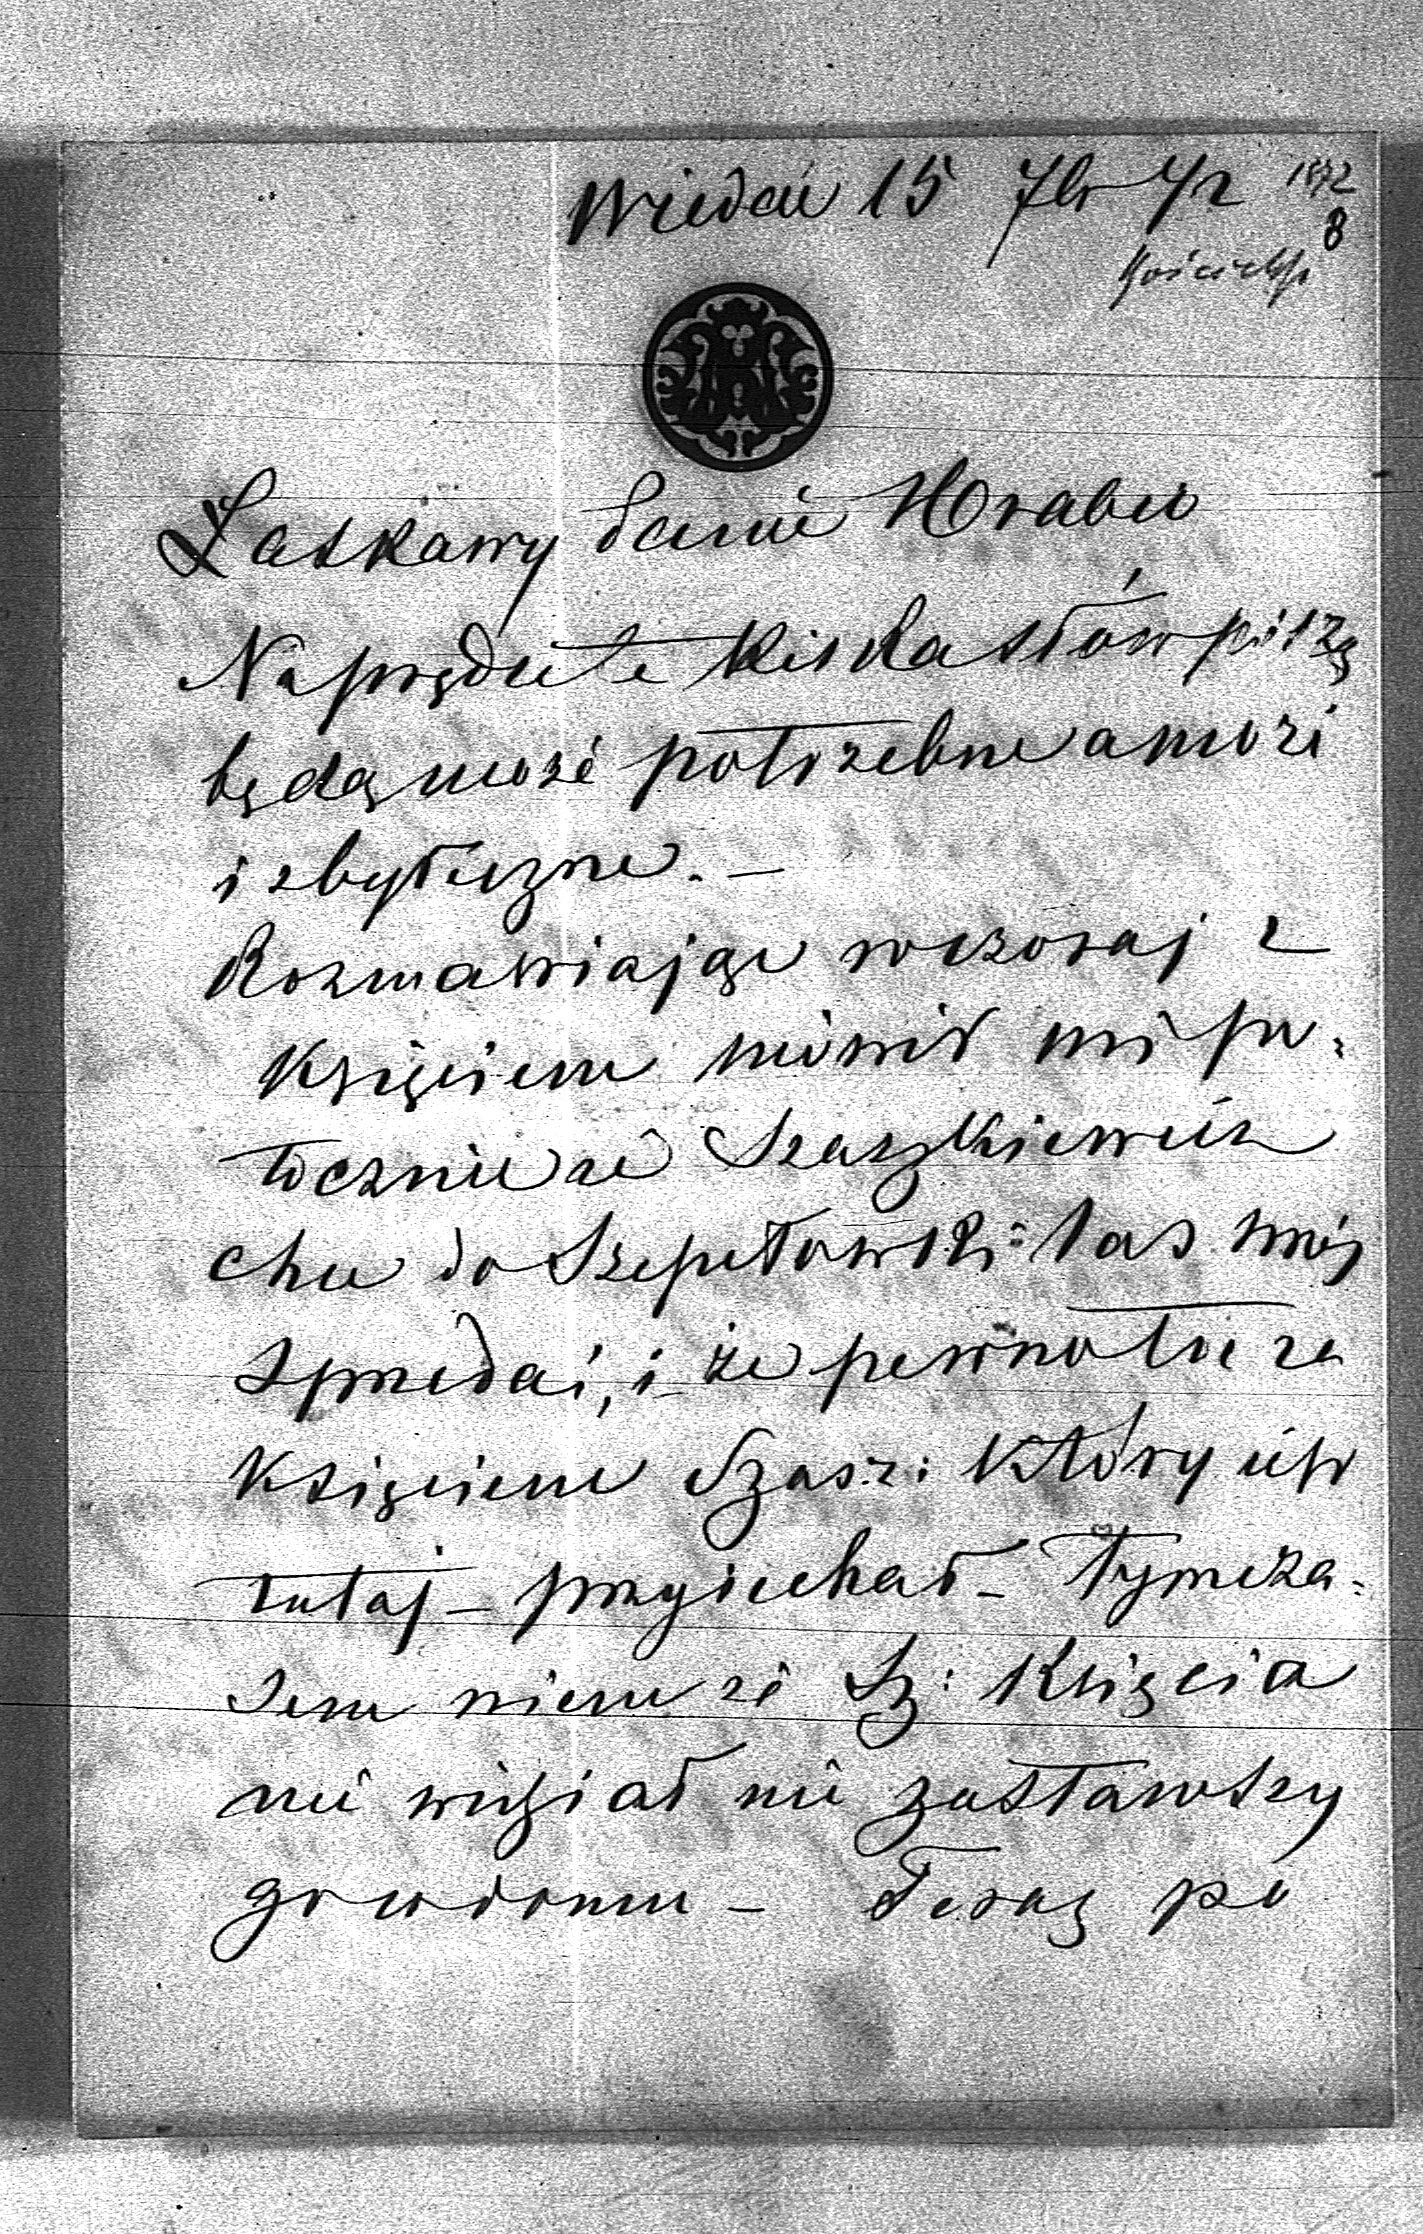 Wiedeń 15 7br 72 1872
8
Łaskawy Panie Hrabio
Naprędce te kilka słów piszę
będą może potrzebne a może
i zbyteczne. –
Rozmawiając wczoraj z
Księciem mówił mi po-
tocznie że Szaszkiewicz
chce do Szepetowki: las swój
sprzedać, i że pewno tu ze
Księciem Szasz: który
tutaj – przyjechał – Tymcza-
sem wiem że Sz: Księcia
nie widział nie zastawszy
go w domu – Teraz po